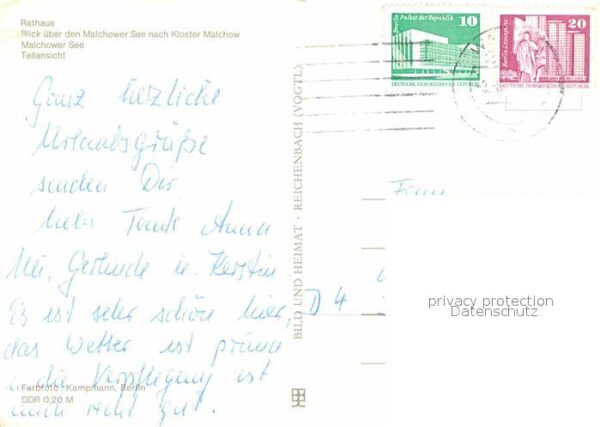 Rathaus
Blick über den Malchower See nach Kloster Malchow
Malchower See
Teilansicht
Ganz herzliche
Urlaubsgrüße
senden Dir
liebe Tante Anna
Gerlinde u. Kerstin.
Es ist sehr schön hier,
das Wetter ist prima
die Verpflegung ist
auch recht gut.
Farbfoto: Kampmann, Berlin
DDR 0,20 M
BILD UND HEIMAT · REICHENBACH (VOGTL)
Berlin Palast der Republik
10
DEUTSCHE DEMOKRATISCHE REPUBLIK
Berlin, Leninplatz
20
DEUTSCHE DEMOKRATISCHE REPUBLIK
D 4
privacy protection
Datenschutz